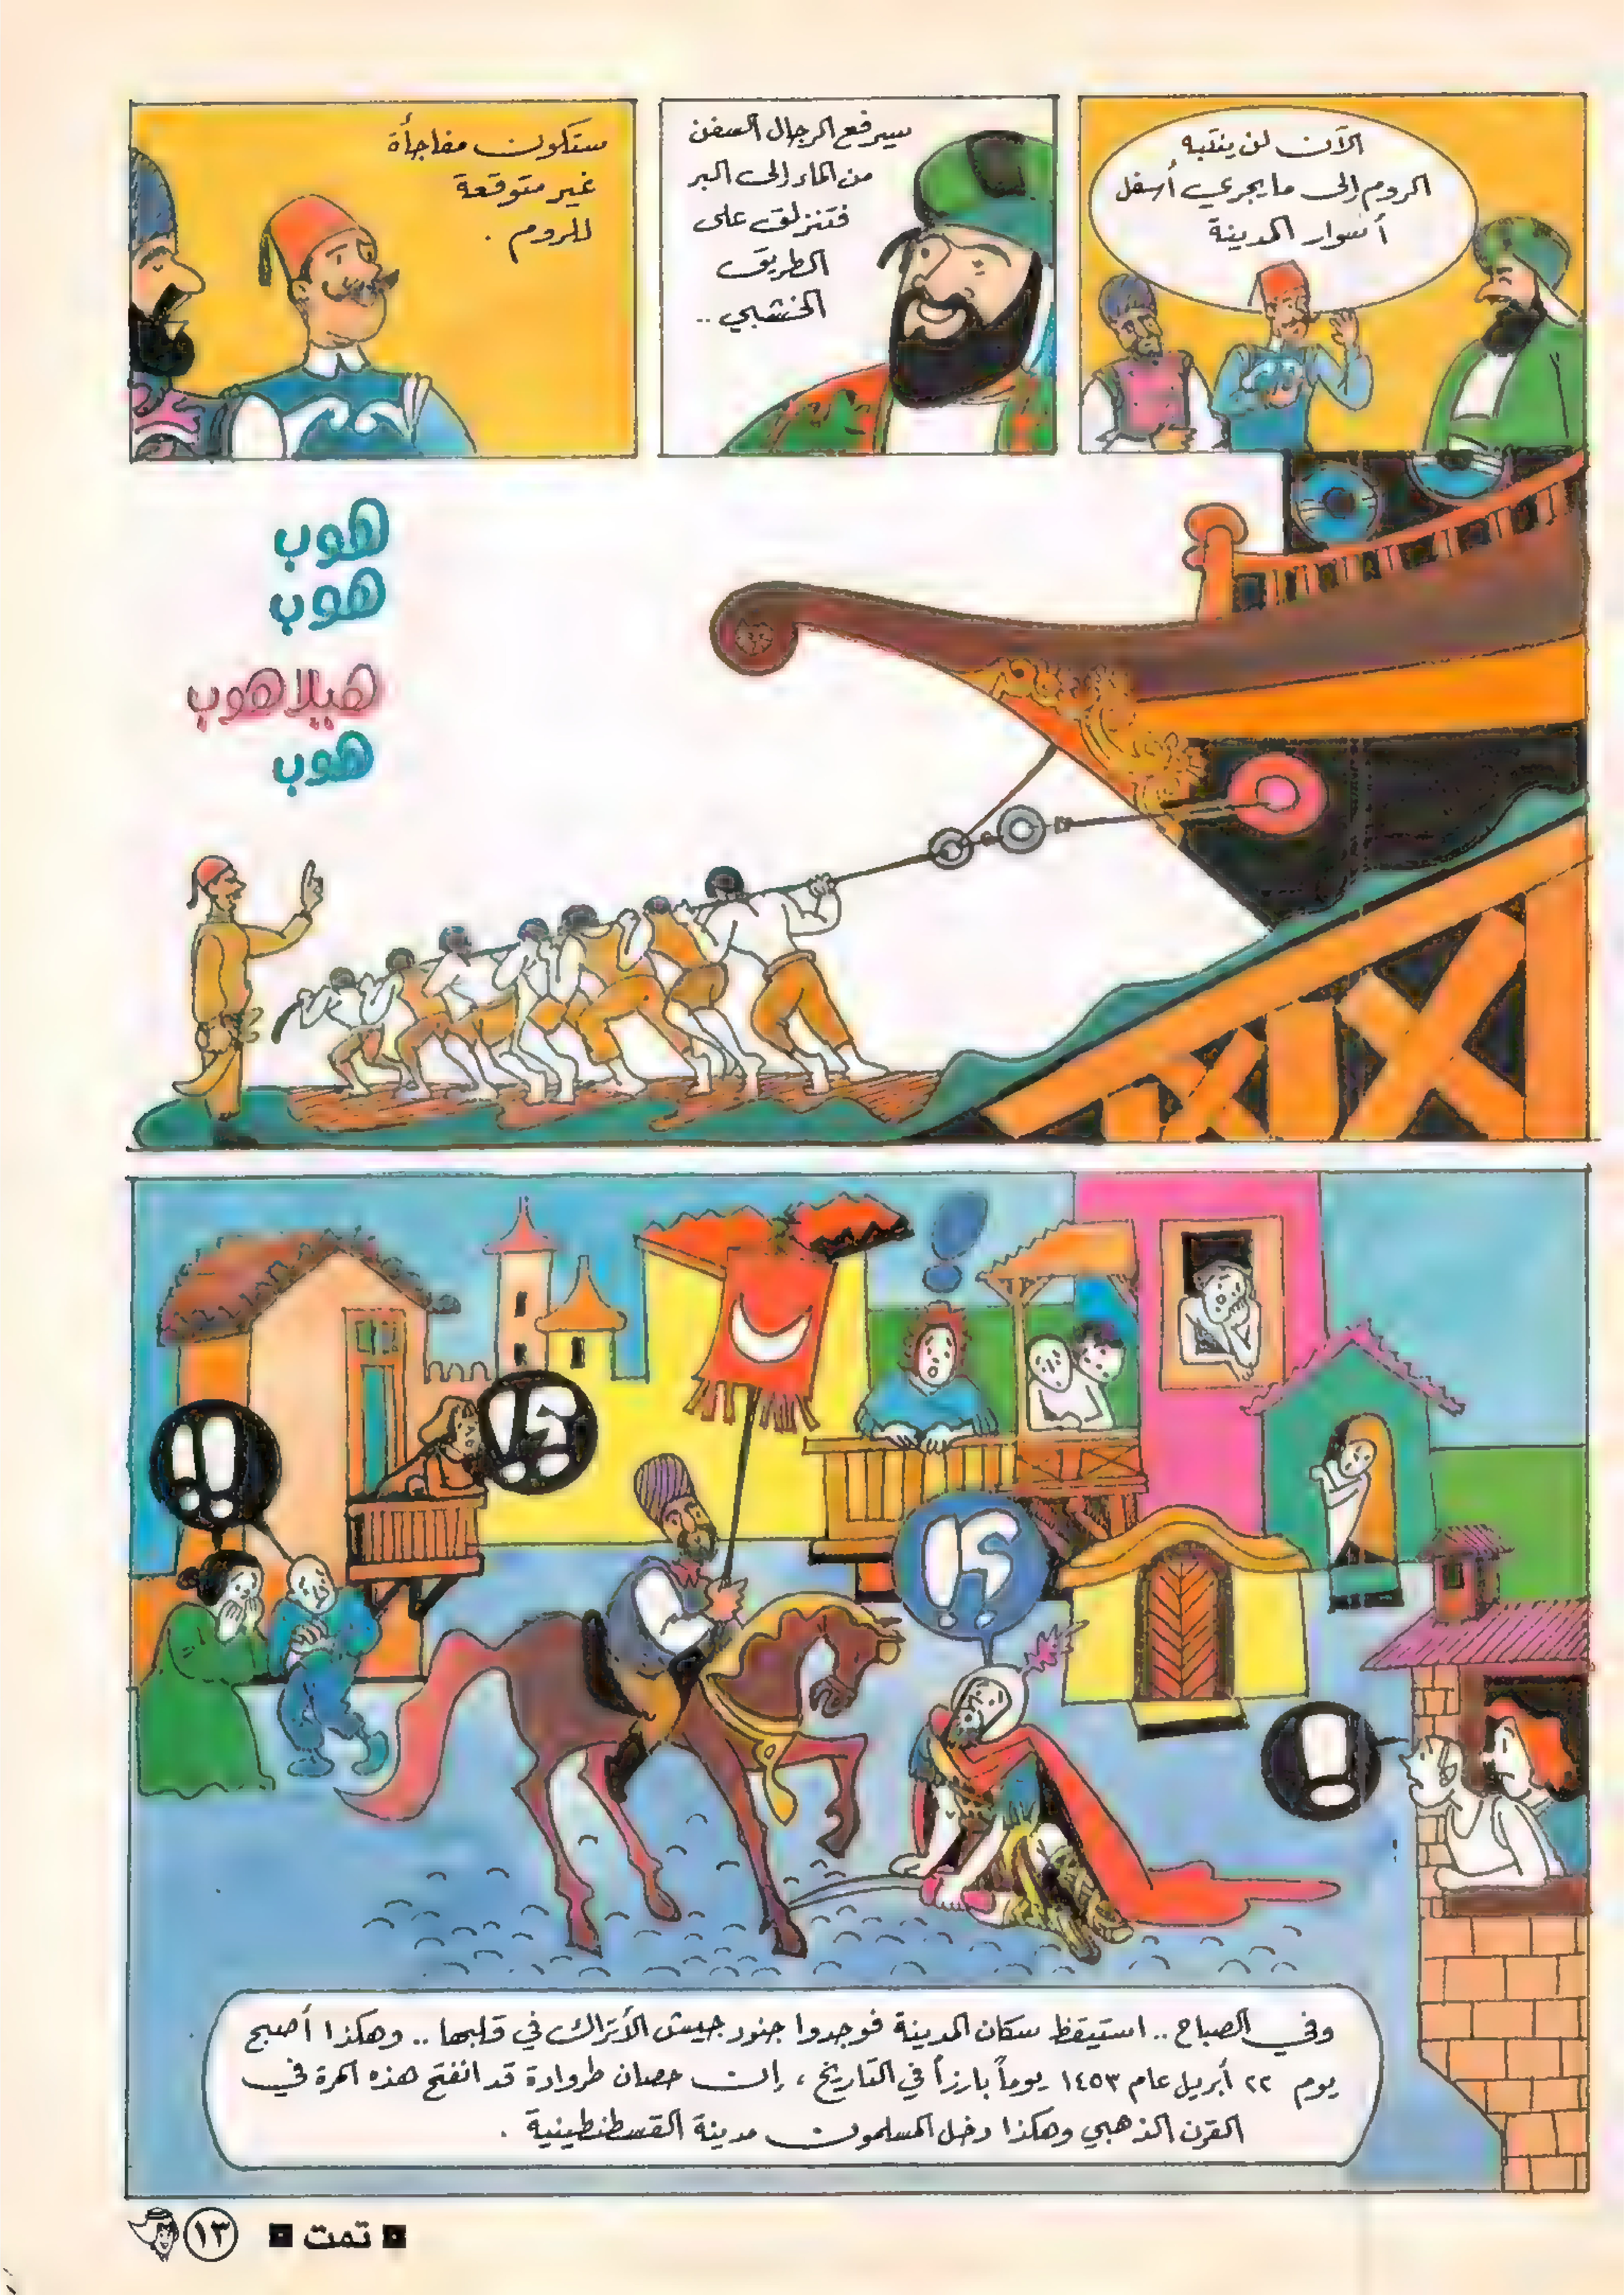 الآن لن ينتبه
الروم إلى ما يجري أسفل
أسوار المدينة
سيرفع الرجال السفن
من الماء إلى البر
فتنزلق على
الطريق
الخشبي ..
ستكون مفاجأة
غير متوقعة
للروم .
هوب
هوب
هيلاهوب
هوب
!!
؟!
!
؟!
!
وفي الصباح .. استيقظ سكان المدينة فوجدوا جنود جيش الأتراك في قلبها .. وهكذا أصبح
يوم ٢٢ أبريل عام ١٤٥٣ يوماً بارزاً في التاريخ ، إن حصان طروادة قد انفتح هذه المرة في
القرن الذهبي وهكذا دخل المسلمون مدينة القسطنطينية .
■ تمت ■
١٣